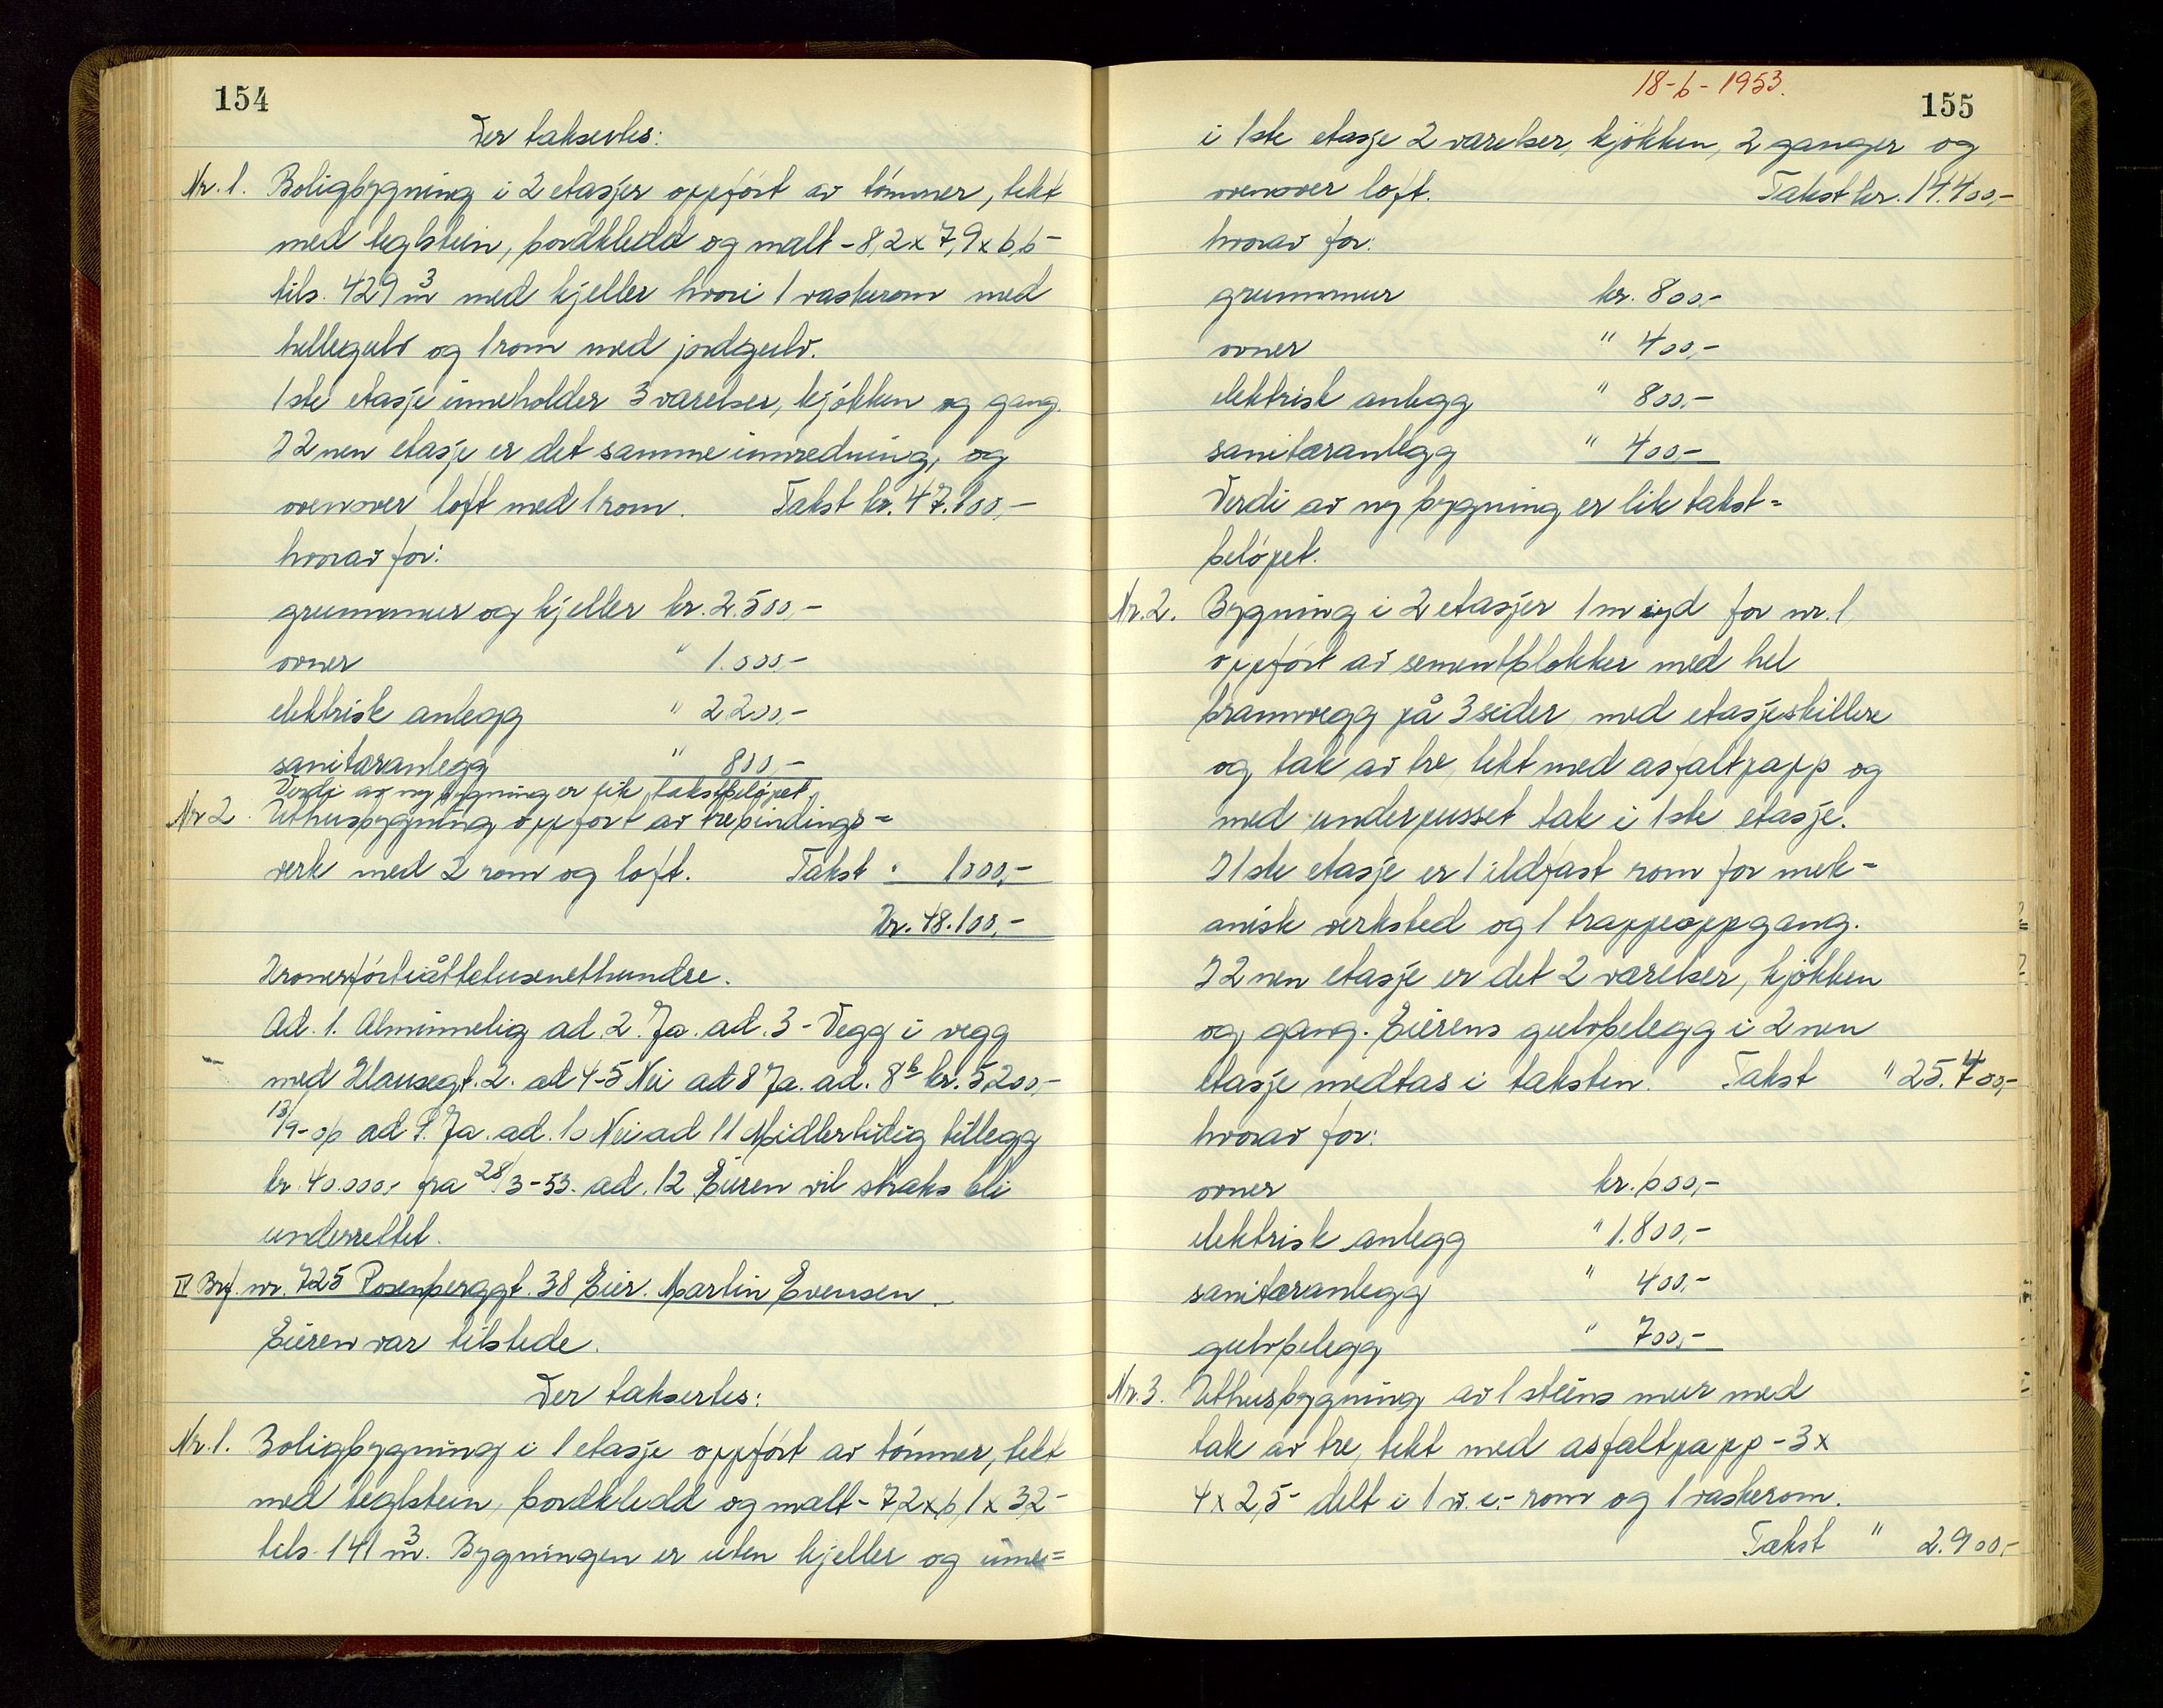 154
Der takseртes:
Nr. 1. Boligbygning i 2 etasjer oppført av tømmer, tekt
med teglstein, bordkledd og malt - 8,2 x 7,9 x 6,6 -
tils. 429 m3 med kjeller hvori 1 vaskerom med
hellegulv og 1 rom med jordgulv.
1ste etasje inneholder 3 værelser, kjøkken og gang.
I 2nen etasje er det samme innredning, og
ovenover loft med 1 rom. Takst kr. 47.100,-
hvorav for:
grunnmur og kjeller kr. 2.500,-
ovner " 1.000-
elektrisk anlegg " 2.200,-
sanitæranlegg " 800,-
Verdi av ny bygning er lik takstbeløpet.
Nr 2. Uthusbygning oppført av trebindings=
verk med 2 rom og loft. Takst " 1000,-
Kr. 48.100,-
Kronerførtiåttetusenethundre.
Ad. 1. Alminnelig ad. 2. Ja. ad. 3 - Vegg i vegg
med Hausegt. 2. ad 4-5 Nei ad 8 Ja. ad. 8b kr. 5.200,-
13/9-06 ad 9. Ja. ad. 10 Nei ad 11 Midlertidig tillegg
kr. 40.000,- fra 28/3-53. ad. 12 Eieren vil straks bli
underrettet.
IV Brf. nr. 725 Rosenberggt. 38 Eier. Martin Evensen.
Eieren var tilstede.
Der taksertes:
Nr. 1. Boligbygning i 1 etasje oppført av tømmer, tekt
med teglstein, bordkledd og malt - 7,2 x 6,1 x 3,2 -
tils. 141 m3. Bygningen er uten kjeller og inne=
18-6-1953.
155
i 1ste etasje 2 værelser, kjøkken, 2 ganger og
ovenover loft. Takst kr. 14.400,-
hvorav for:
grunnmur kr. 800,-
ovner " 400,-
elektrisk anlegg " 800,-
sanitæranlegg " 400-
Verdi av ny bygning er lik takst=
beløpet.
Nr. 2. Bygning i 2 etasjer 1 m syd for nr. 1,
oppført av sementblokker med hel
brannvegg på 3 sider, med etasjeskillere
og tak av tre, tekt med asfaltpapp og
med underpusset tak i 1ste etasje.
I 1ste etasje er 1 ildfast rom for mek=
anisk verksted og 1 trappeoppgang.
I 2nen etasje er det 2 værelser, kjøkken
og gang. Eierens gulvbelegg i 2nen
etasje medtas i taksten. Takst " 25.400,-
hvorav for:
ovner kr. 600,-
elektrisk anlegg " 1.800,-
sanitæranlegg " 400,-
gulvbelegg " 700,-
Nr. 3. Uthusbygning av 1 steins mur med
tak av tre, tekt med asfaltpapp - 3 x
4 x 2,5 - delt i 1 w.c.- rom og 1 vaskerom.
Takst " 2.900,-